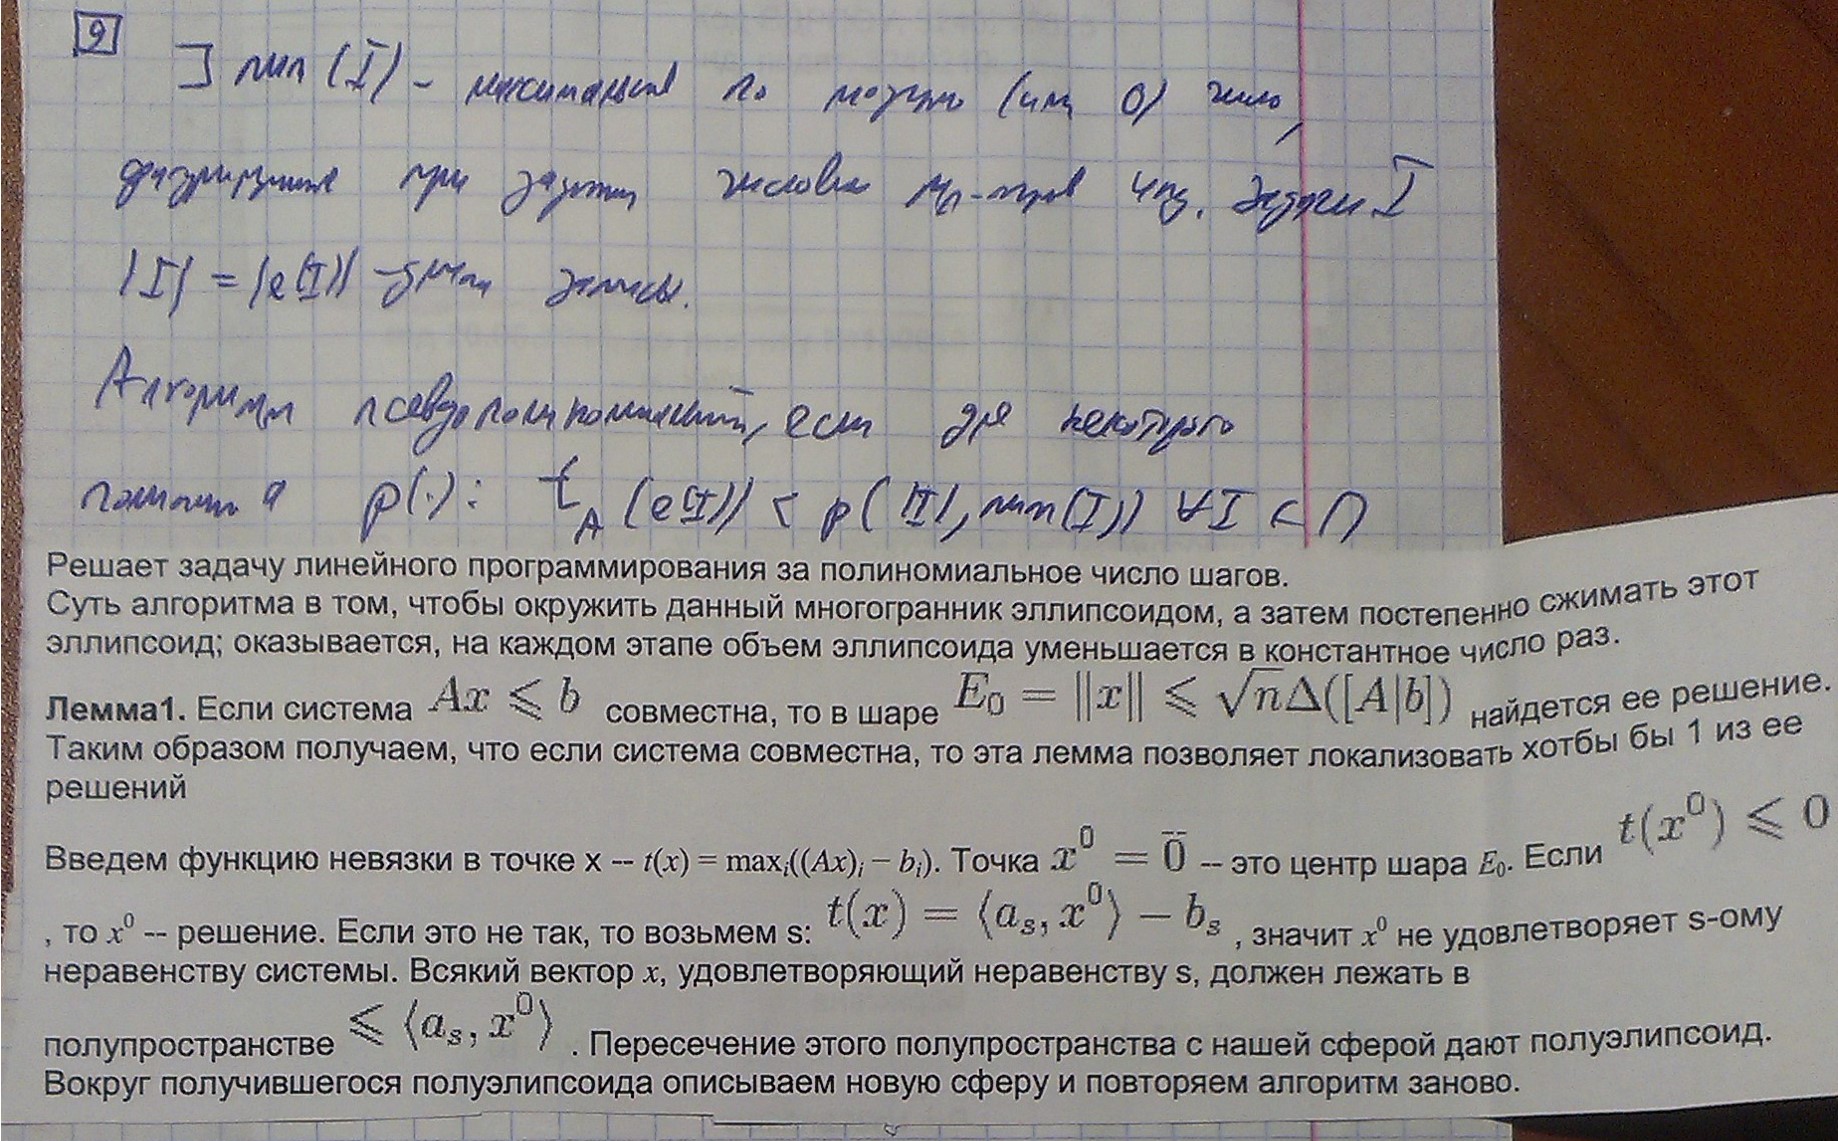 9
] num (I) – максимальное по модулю (или 0) число,
фигурирующее при задании числовых пар-тров инд. задачи I
|I| = |e(I)| – длина записи.
Алгоритм псевдополиномиальный, если для некоторого
полинома p(·): t_A (e(I)) < p(|I|, num(I)) ∀I ⊂ П
Решает задачу линейного программирования за полиномиальное число шагов.
Суть алгоритма в том, чтобы окружить данный многогранник эллипсоидом, а затем постепенно сжимать этот
эллипсоид; оказывается, на каждом этапе объем эллипсоида уменьшается в константное число раз.
Лемма1. Если система Ax ⩽ b совместна, то в шаре E₀ = ||x|| ⩽ √nΔ([A|b]) найдется ее решение.
Таким образом получаем, что если система совместна, то эта лемма позволяет локализовать хотбы бы 1 из ее
решений
Введем функцию невязки в точке x -- t(x) = maxᵢ((Ax)ᵢ − bᵢ). Точка x⁰ = 0̄ -- это центр шара E₀. Если t(x⁰) ⩽ 0
, то x⁰ -- решение. Если это не так, то возьмем s: t(x) = ⟨aₛ, x⁰⟩ − bₛ , значит x⁰ не удовлетворяет s-ому
неравенству системы. Всякий вектор x, удовлетворяющий неравенству s, должен лежать в
полупространстве ⩽ ⟨aₛ, x⁰⟩ . Пересечение этого полупространства с нашей сферой дают полуэлипсоид.
Вокруг получившегося полуэлипсоида описываем новую сферу и повторяем алгоритм заново.